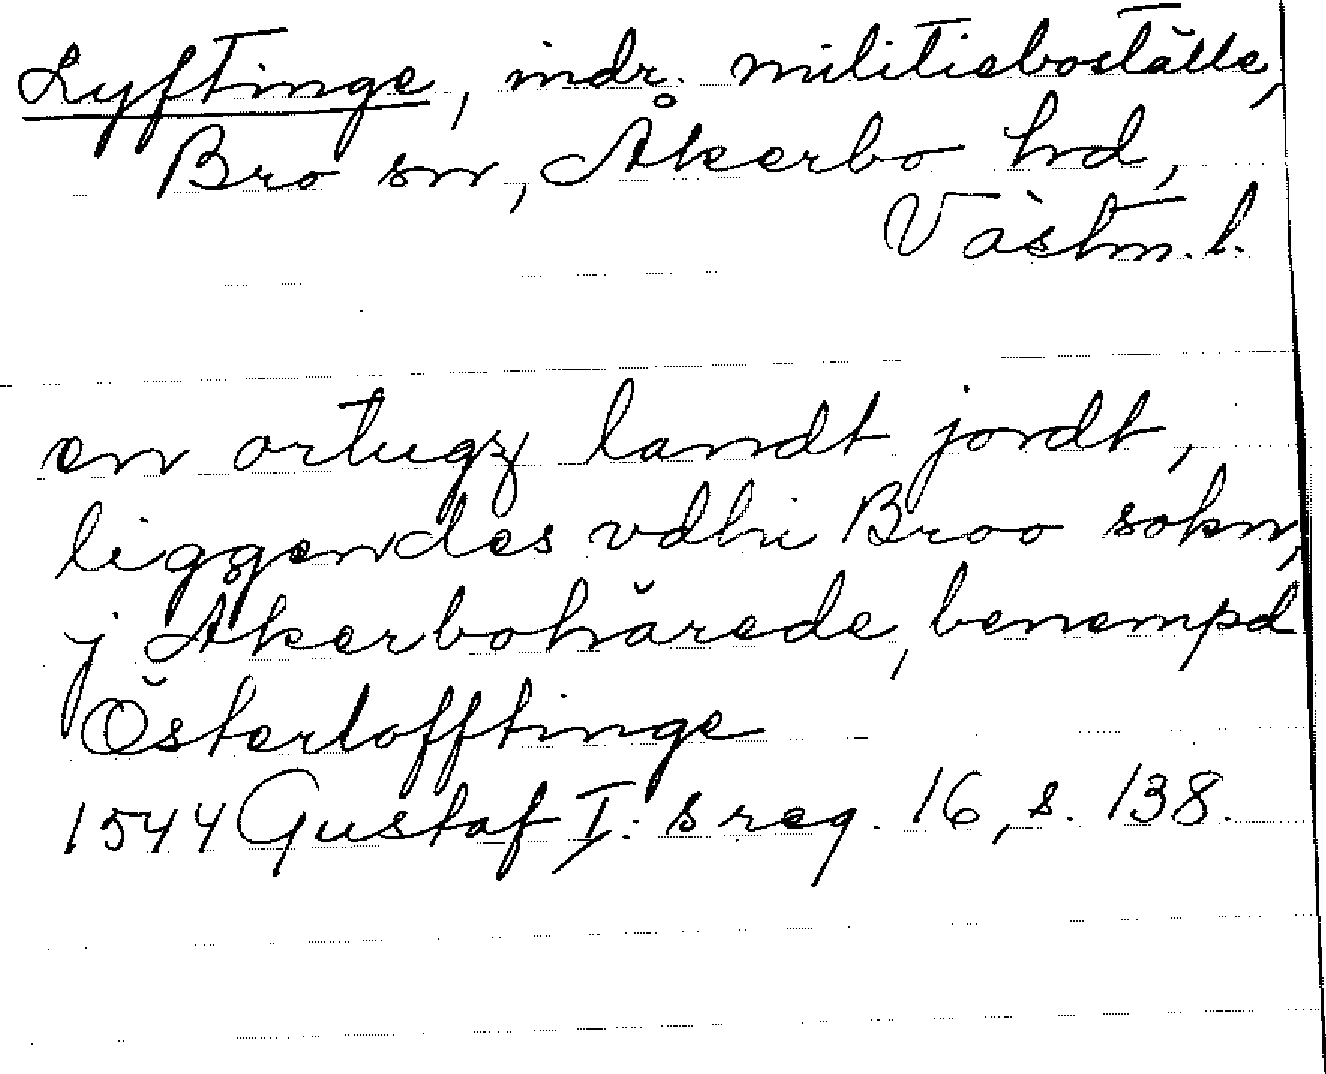 Lyftinge, indr. militieboställe,
Bro sn, Åkerbo hd,
Västm. l.
en ortugz landt jordt,
liggendes vdhi Broo sokn,
j Åkerbohärede, benempd
Österlofftinge
1544 Gustaf I:s reg. 16, s. 138.